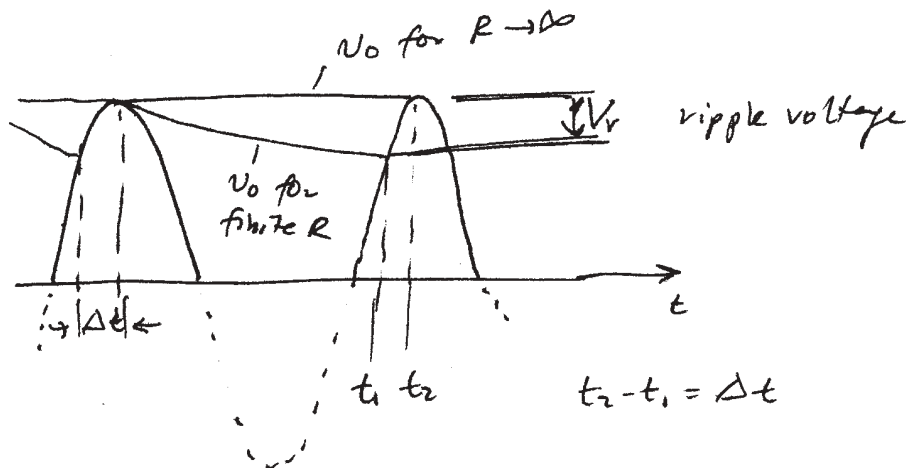 v₀ for R → ∞
Vr ripple voltage
v₀ for
finite R
Δt
t
t₁ t₂
t₂ - t₁ = Δt